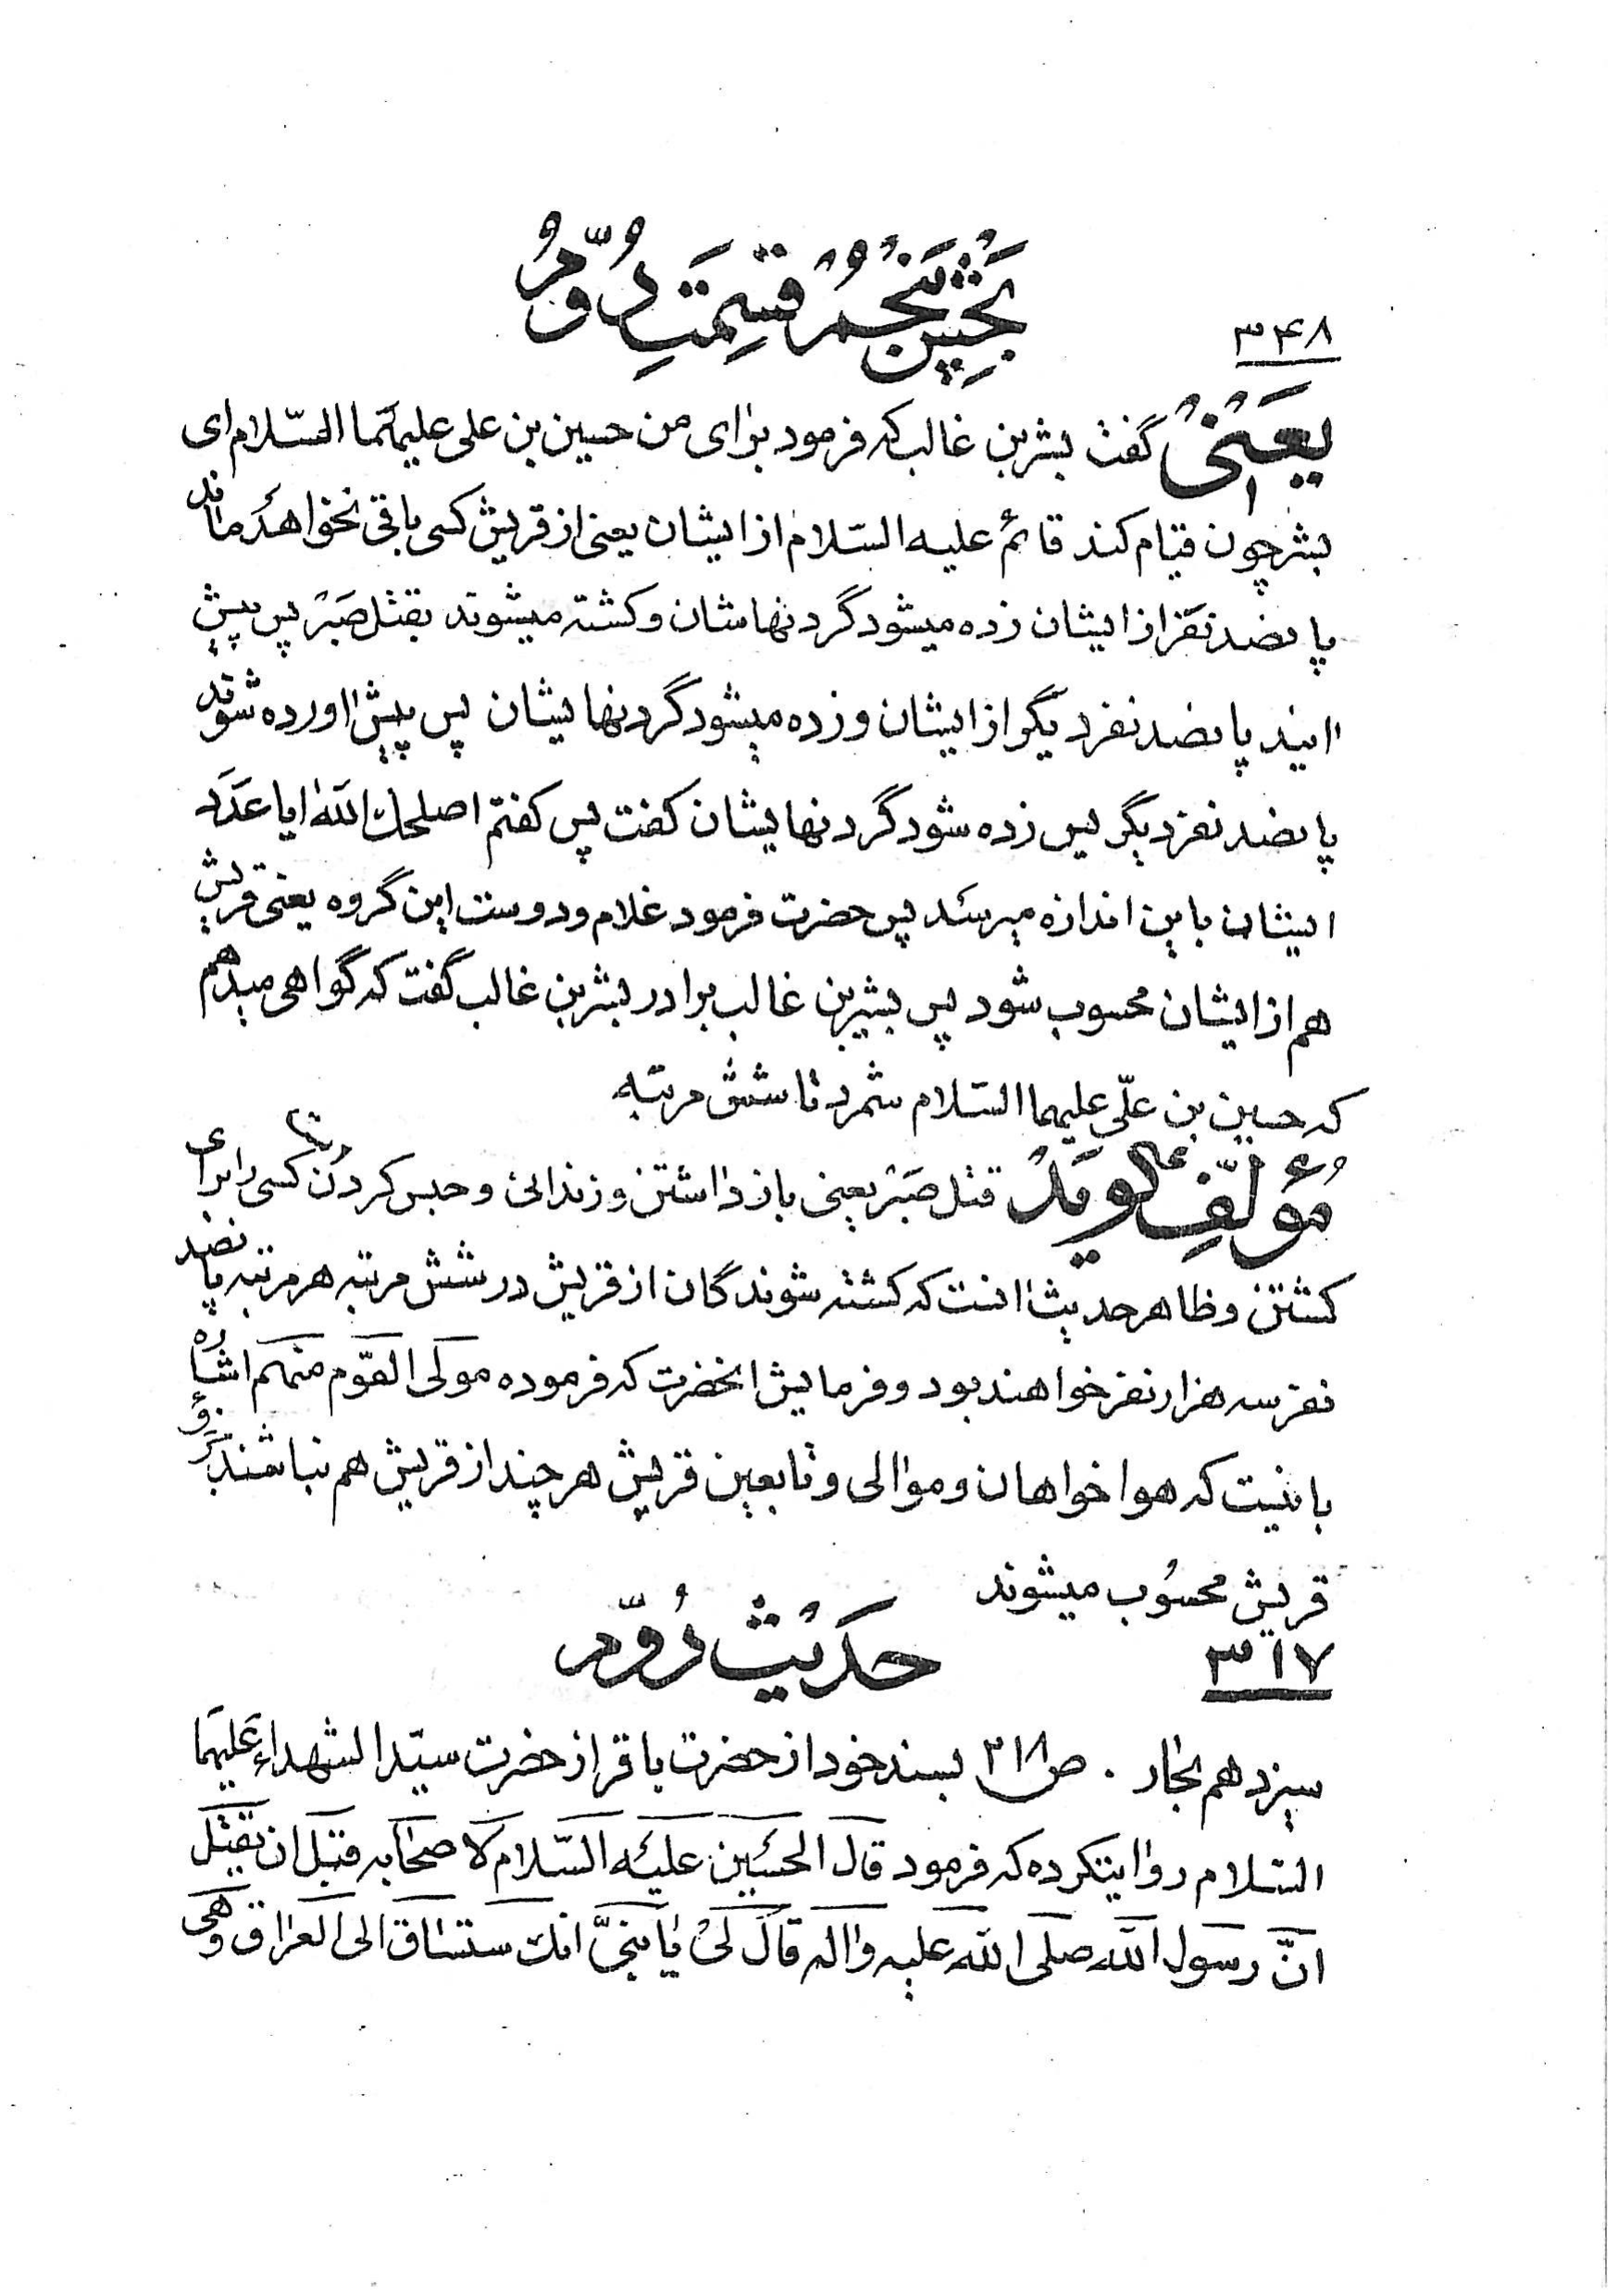 بخش پنجم قسمت دوم
۳۴۸
یعنی گفت بشر بن غالب که فرمود برای من حسین بن علی علیهما السلام ای
بشر چون قیام کند قائم علیه السلام از ایشان یعنی از قریش کسی باقی نخواهد ماند
پانصد نفر از ایشان زده میشود گردنهاشان و کشته میشوند بقتل صبر پس پیش
ایند پانصد نفر دیگر از ایشان و زده میشود گردنهایشان پس پیش اورده شوند
پانصد نفر دیگر پس زده شود گردنهایشان گفت پس گفتم اصلحک الله ایا عدد
ایشان باین اندازه میرسد پس حضرت فرمود غلام و دوست این گروه یعنی قریش
هم از ایشان محسوب شود پس بشیر بن غالب برادر بشر بن غالب گفت که گواهی میدهم
که حسین بن علی علیهما السلام شمرد تا شش مرتبه
مؤلف گوید قتل صبر یعنی باز داشتن و زندانی و حبس کردن کسی را برای
کشتن و ظاهر حدیث انست که کشته شوندگان از قریش در شش مرتبه هر مرتبه پانصد
نفر سه هزار نفر خواهند بود و فرمایش انحضرت که فرموده مولی القوم منهم اشاره
باینست که هواخواهان و موالی و تابعین قریش هر چند از قریش هم نباشند جزو
قریش محسوب میشوند
۳۱۷ حدیث دوم
سیزدهم بحار . ص ۲۱۸ بسند خود از حضرت باقر از حضرت سید الشهداء علیهما
السلام روایتکرده که فرمود قال الحسین علیه السلام لاصحابه قبل ان یقتل
ان رسول الله صلی الله علیه واله قال لی یا بنی انک ستساق الی العراق وهی